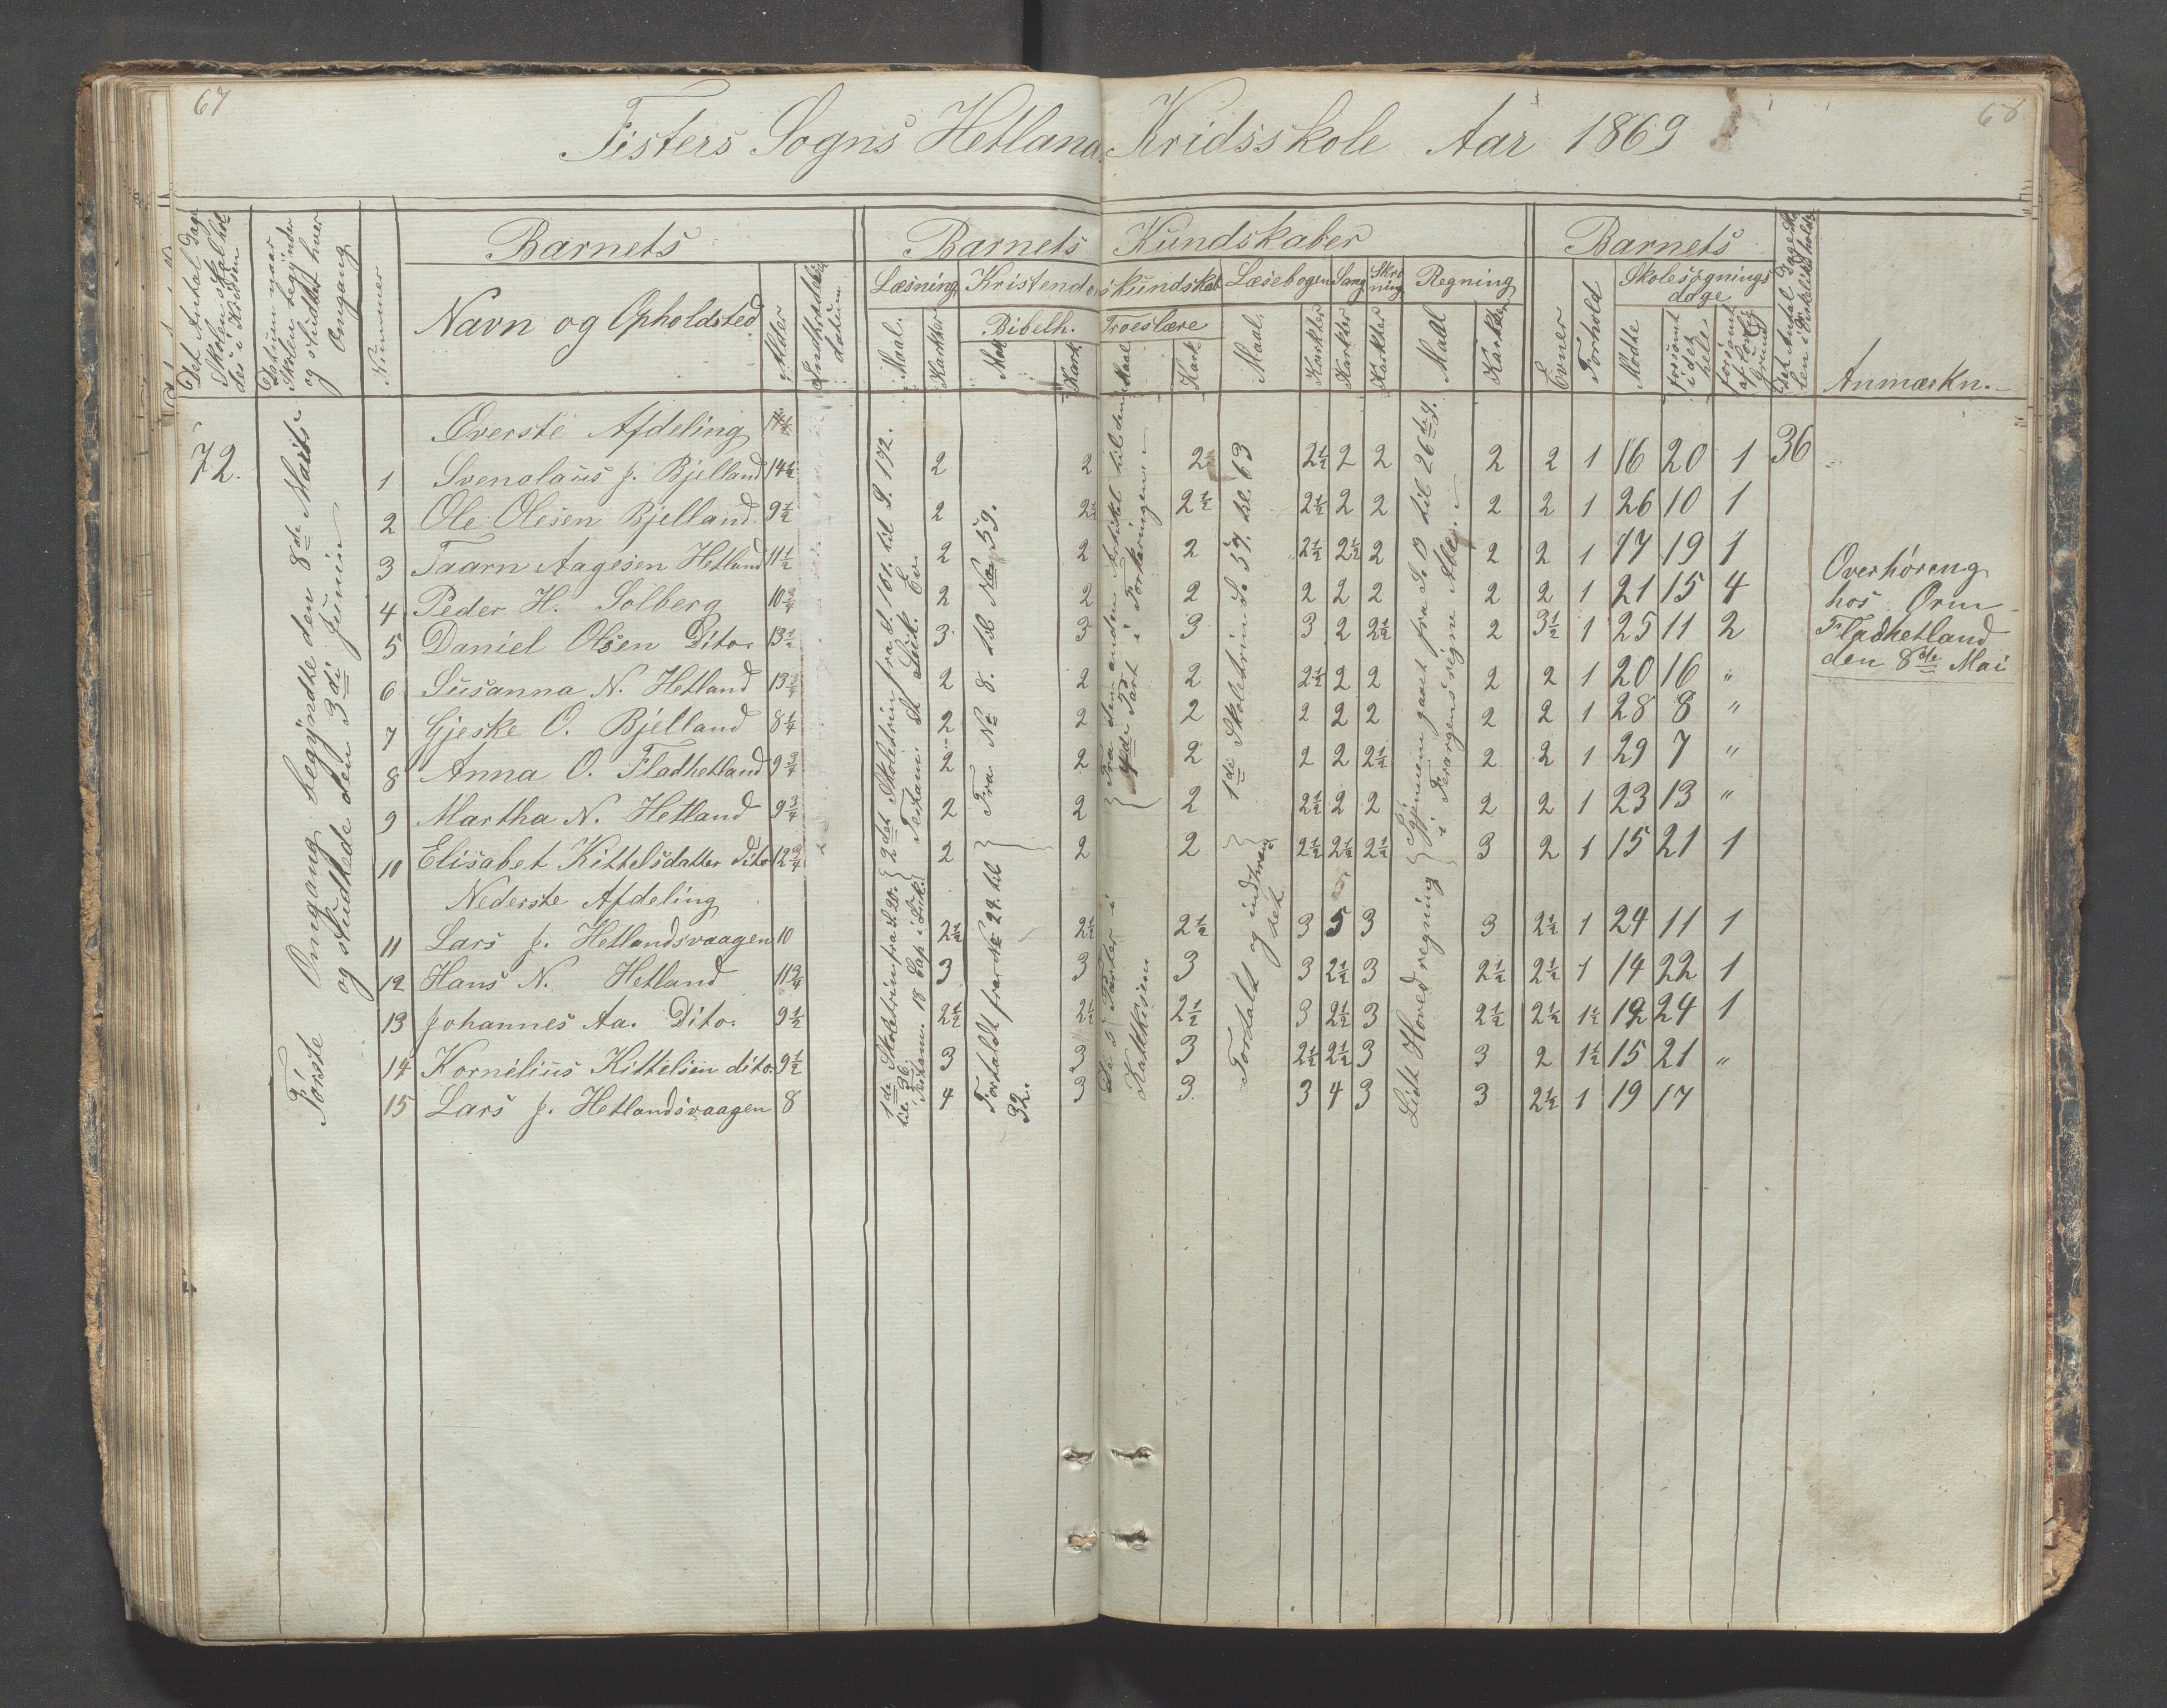 67
68
Fisters Sogns Hetland Kridsskole Aar 1869
Det Antal Dage Skolen skal holdes i Kredsen
Datum naar Skolen begynder og sluttet hver Omgang
Nummer
Barnets
Navn og Opholdsted
Alder
Indtrædelses datum
Barnets Kundskaber
Læsning
Maal.
Karkter
Kristendomskundskab
Bibelh.
Maal
Kark.
Troeslære
Maal
Kark
Læsebogen
Maal.
Karkter
Sang
Karkter
Skrivning
Karkter
Regning
Maal
Karkter
Barnets
Evner
Forhold
Skolesøgnings dage
Mødte
forsømt i det hele
forsømt af lovlig Grund
Det Antal Dage Skolen i Virkeligh. holdtes
Anmærkn.
72.
Første Omgang begyndte den 8de Marts og sluttede den 3di Junin
Øverste Afdeling
1 Svenolaus J. Bjelland 14½ 2 2 2 2½ 2 2 2 2 1 16 20 1 36
2 Ole Olesen Bjelland 9½ 2 2½ 2½ 2½ 2 2 2 2 1 26 10 1
3 Taarn Aagesen Hetland 11½ 2 2 2 2½ 2½ 2 2 2 1 17 19 1
4 Peder H. Solberg 10¾ 2 2 2 2 2 2 2 2 1 21 15 4
5 Daniel Olsen Dito 13½ 3 3 3 3 2 2½ 2 3½ 1 25 11 2
6 Susanna N. Hetland 13¾ 2 2 2 2½ 2 2 2 2 1 20 16 "
7 Gjeske O. Bjelland 8¼ 2 2 2 2 2 2 2 2 1 28 8 "
8 Anna O. Fladhetland 9¾ 2 2 2 2 2 2½ 2 2 1 29 7 "
9 Martha N. Hetland 9¾ 2 2 2 2½ 2 2 2 2 1 23 13 "
10 Elisabet Kittelsdatter Dito 12¾ 2 2 2 2½ 2½ 2½ 3 2 1 15 21 1
Nederste Afdeling
11 Lars J. Hetlandsvaagen 10 2½ 2½ 2½ 3 5 3 3 2½ 1 24 11 1
12 Hans N. Hetland 11¾ 3 3 3 3 2½ 3 2½ 2½ 1 14 22 1
13 Johannes Aa. Dito. 9½ 2½ 2½ 2½ 3 2½ 3 2½ 2½ 1½ 12 24 1
14 Kornelius Kittelsen dito 9½ 3 3 3 2½ 2½ 3 3 2 1½ 15 21 "
15 Lars J. Hetlandsvaagen 8 4 3 3 3 4 3 3 2½ 1 19 17
2det Skoletrin fra S. 161. til S. 172.
Testam. St Luk. Ev.
1de Skoletrin fra S. 20. til 36.
Testamn. 18 Cap i Luk.
Fra No 8. til No 59.
Fortaldt fra No 29. til 32.
Fra den anden Artikel til den
4de Part i Forklaringen
De 5 Parter i Katekisem
1de Skoletrin S. 57. til. 63
Fortaldt og indtrened det
Igjennemgaaet fra S. 19 til 26 tig.
i Ferargens regne Abc.
Lidt Hovedregning
Overhøreng
hos Orm
Fladhetland
den 8de Mai